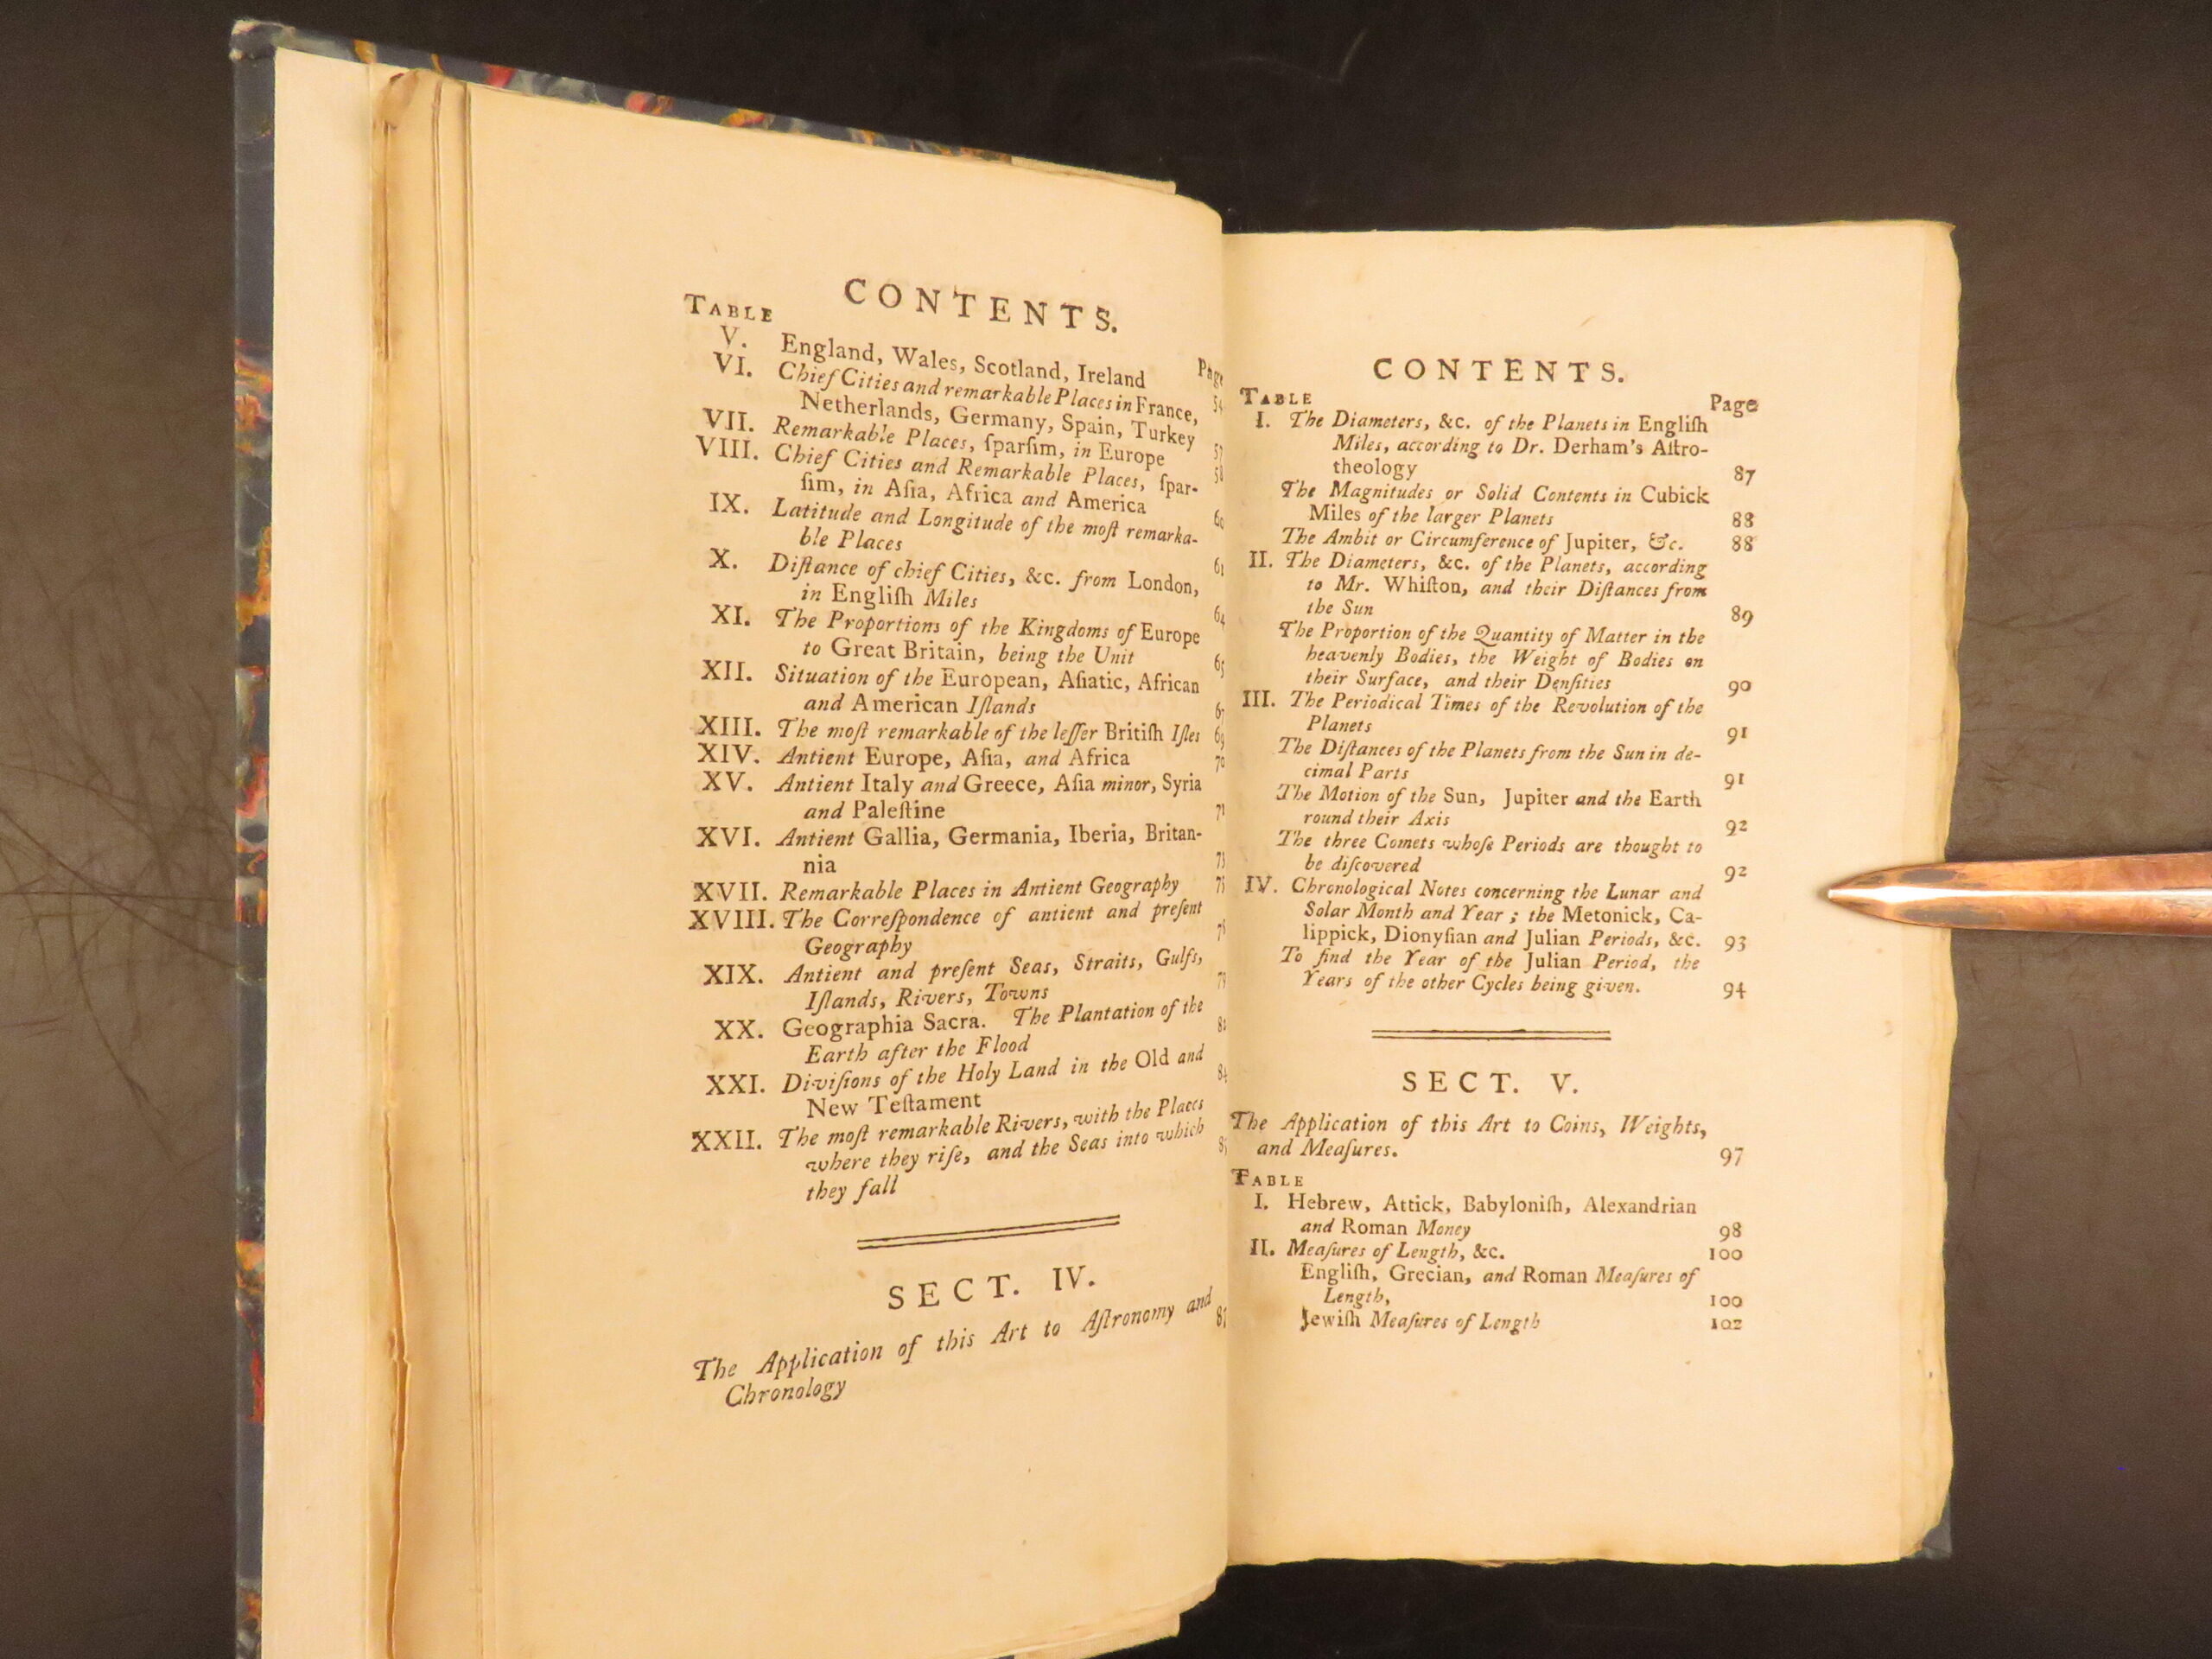 CONTENTS.
TABLE
Page
V. England, Wales, Scotland, Ireland 54
VI. Chief Cities and remarkable Places in France,
Netherlands, Germany, Spain, Turkey 57
VII. Remarkable Places, ſparſim, in Europe 58
VIII. Chief Cities and Remarkable Places, ſpar-
ſim, in Aſia, Africa and America 60
IX. Latitude and Longitude of the moſt remarka-
ble Places 61
X. Diſtance of chief Cities, &c. from London,
in Engliſh Miles 64
XI. The Proportions of the Kingdoms of Europe
to Great Britain, being the Unit 65
XII. Situation of the European, Aſiatic, African
and American Iſlands 67
XIII. The moſt remarkable of the leſſer Britiſh Iſles 69
XIV. Antient Europe, Aſia, and Africa 70
XV. Antient Italy and Greece, Aſia minor, Syria
and Paleſtine 71
XVI. Antient Gallia, Germania, Iberia, Britan-
nia 73
XVII. Remarkable Places in Antient Geography
XVIII. The Correſpondence of antient and preſent
Geography
XIX. Antient and preſent Seas, Straits, Gulfs,
Iſlands, Rivers, Towns
XX. Geographia Sacra. The Plantation of the
Earth after the Flood
XXI. Diviſions of the Holy Land in the Old and
New Teſtament 84
XXII. The moſt remarkable Rivers, with the Places
where they riſe, and the Seas into which
they fall
SECT. IV.
The Application of this Art to Aſtronomy and
Chronology 87
CONTENTS.
TABLE Page
I. The Diameters, &c. of the Planets in Engliſh
Miles, according to Dr. Derham's Aſtro-
theology 87
The Magnitudes or Solid Contents in Cubick
Miles of the larger Planets 88
The Ambit or Circumference of Jupiter, &c. 88
II. The Diameters, &c. of the Planets, according
to Mr. Whiſton, and their Diſtances from
the Sun 89
The Proportion of the Quantity of Matter in the
heavenly Bodies, the Weight of Bodies on
their Surface, and their Denſities 90
III. The Periodical Times of the Revolution of the
Planets 91
The Diſtances of the Planets from the Sun in de-
cimal Parts 91
The Motion of the Sun, Jupiter and the Earth
round their Axis 92
The three Comets whoſe Periods are thought to
be diſcovered 92
IV. Chronological Notes concerning the Lunar and
Solar Month and Year ; the Metonick, Ca-
lippick, Dionyſian and Julian Periods, &c. 93
To find the Year of the Julian Period, the
Years of the other Cycles being given. 94
SECT. V.
The Application of this Art to Coins, Weights,
and Meaſures. 97
TABLE
I. Hebrew, Attick, Babyloniſh, Alexandrian
and Roman Money 98
II. Meaſures of Length, &c. 100
Engliſh, Grecian, and Roman Meaſures of
Length, 100
Jewiſh Meaſures of Length 102